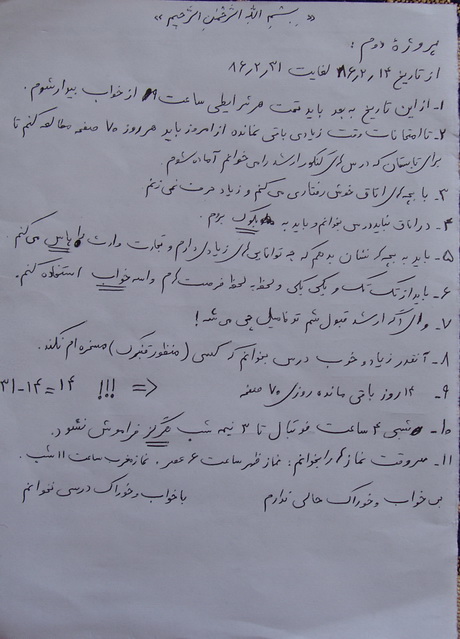 « بسم الله الرحمن الرحیم »
پروژهٔ دوم :
از تاریخ ۸۶٫۲٫۱۴ لغایت ۸۶٫۲٫۳۱
۱- از این تاریخ به بعد باید تحت هر شرایطی ساعت ۹ از خواب بیدار شوم.
۲- تا امتحانات وقت زیادی باقی نمانده از امروز باید هر روز ۷۰ صفحه مطالعه کنم تا
برای تابستان که درس های کنکور ارشد را می خوانم آماده شوم.
۳- با بچه های اتاق خوش رفتاری می کنم و زیاد حرف نمی زنم
۴- در اتاق نباید درس بخوانم و باید به بروم.
۵- باید به بچه ها نشان بدهم که چه توانایی های زیادی دارم و تجارت وارث را پاس می کنم.
۶- باید از تک تک و یکی یکی و لحظه به لحظه فرصت هام واسه خواب استفاده کنم.
۷- وای اگر ارشد قبول شم تو فامیل چی می شه!
۸- آنقدر زیاد و خوب درس بخوانم که کسی (منظور قنبرک) مسخره ام نکند.
۹- ۱۴ روز باقی مانده روزی ۷۰ صفحه <= !!! ۳۱-۱۴=۱۴
۱۰- شبی ۴ ساعت فوتبال تا ۳ نیمه شب هرگز فراموش نشود.
۱۱- سر وقت نماز را بخوانم: نماز ظهر ساعت ۶ عصر، نماز مغرب ساعت ۱۱ شب.
بی خواب و خوراک حالی ندارم با خواب و خوراک درسی نخوانم